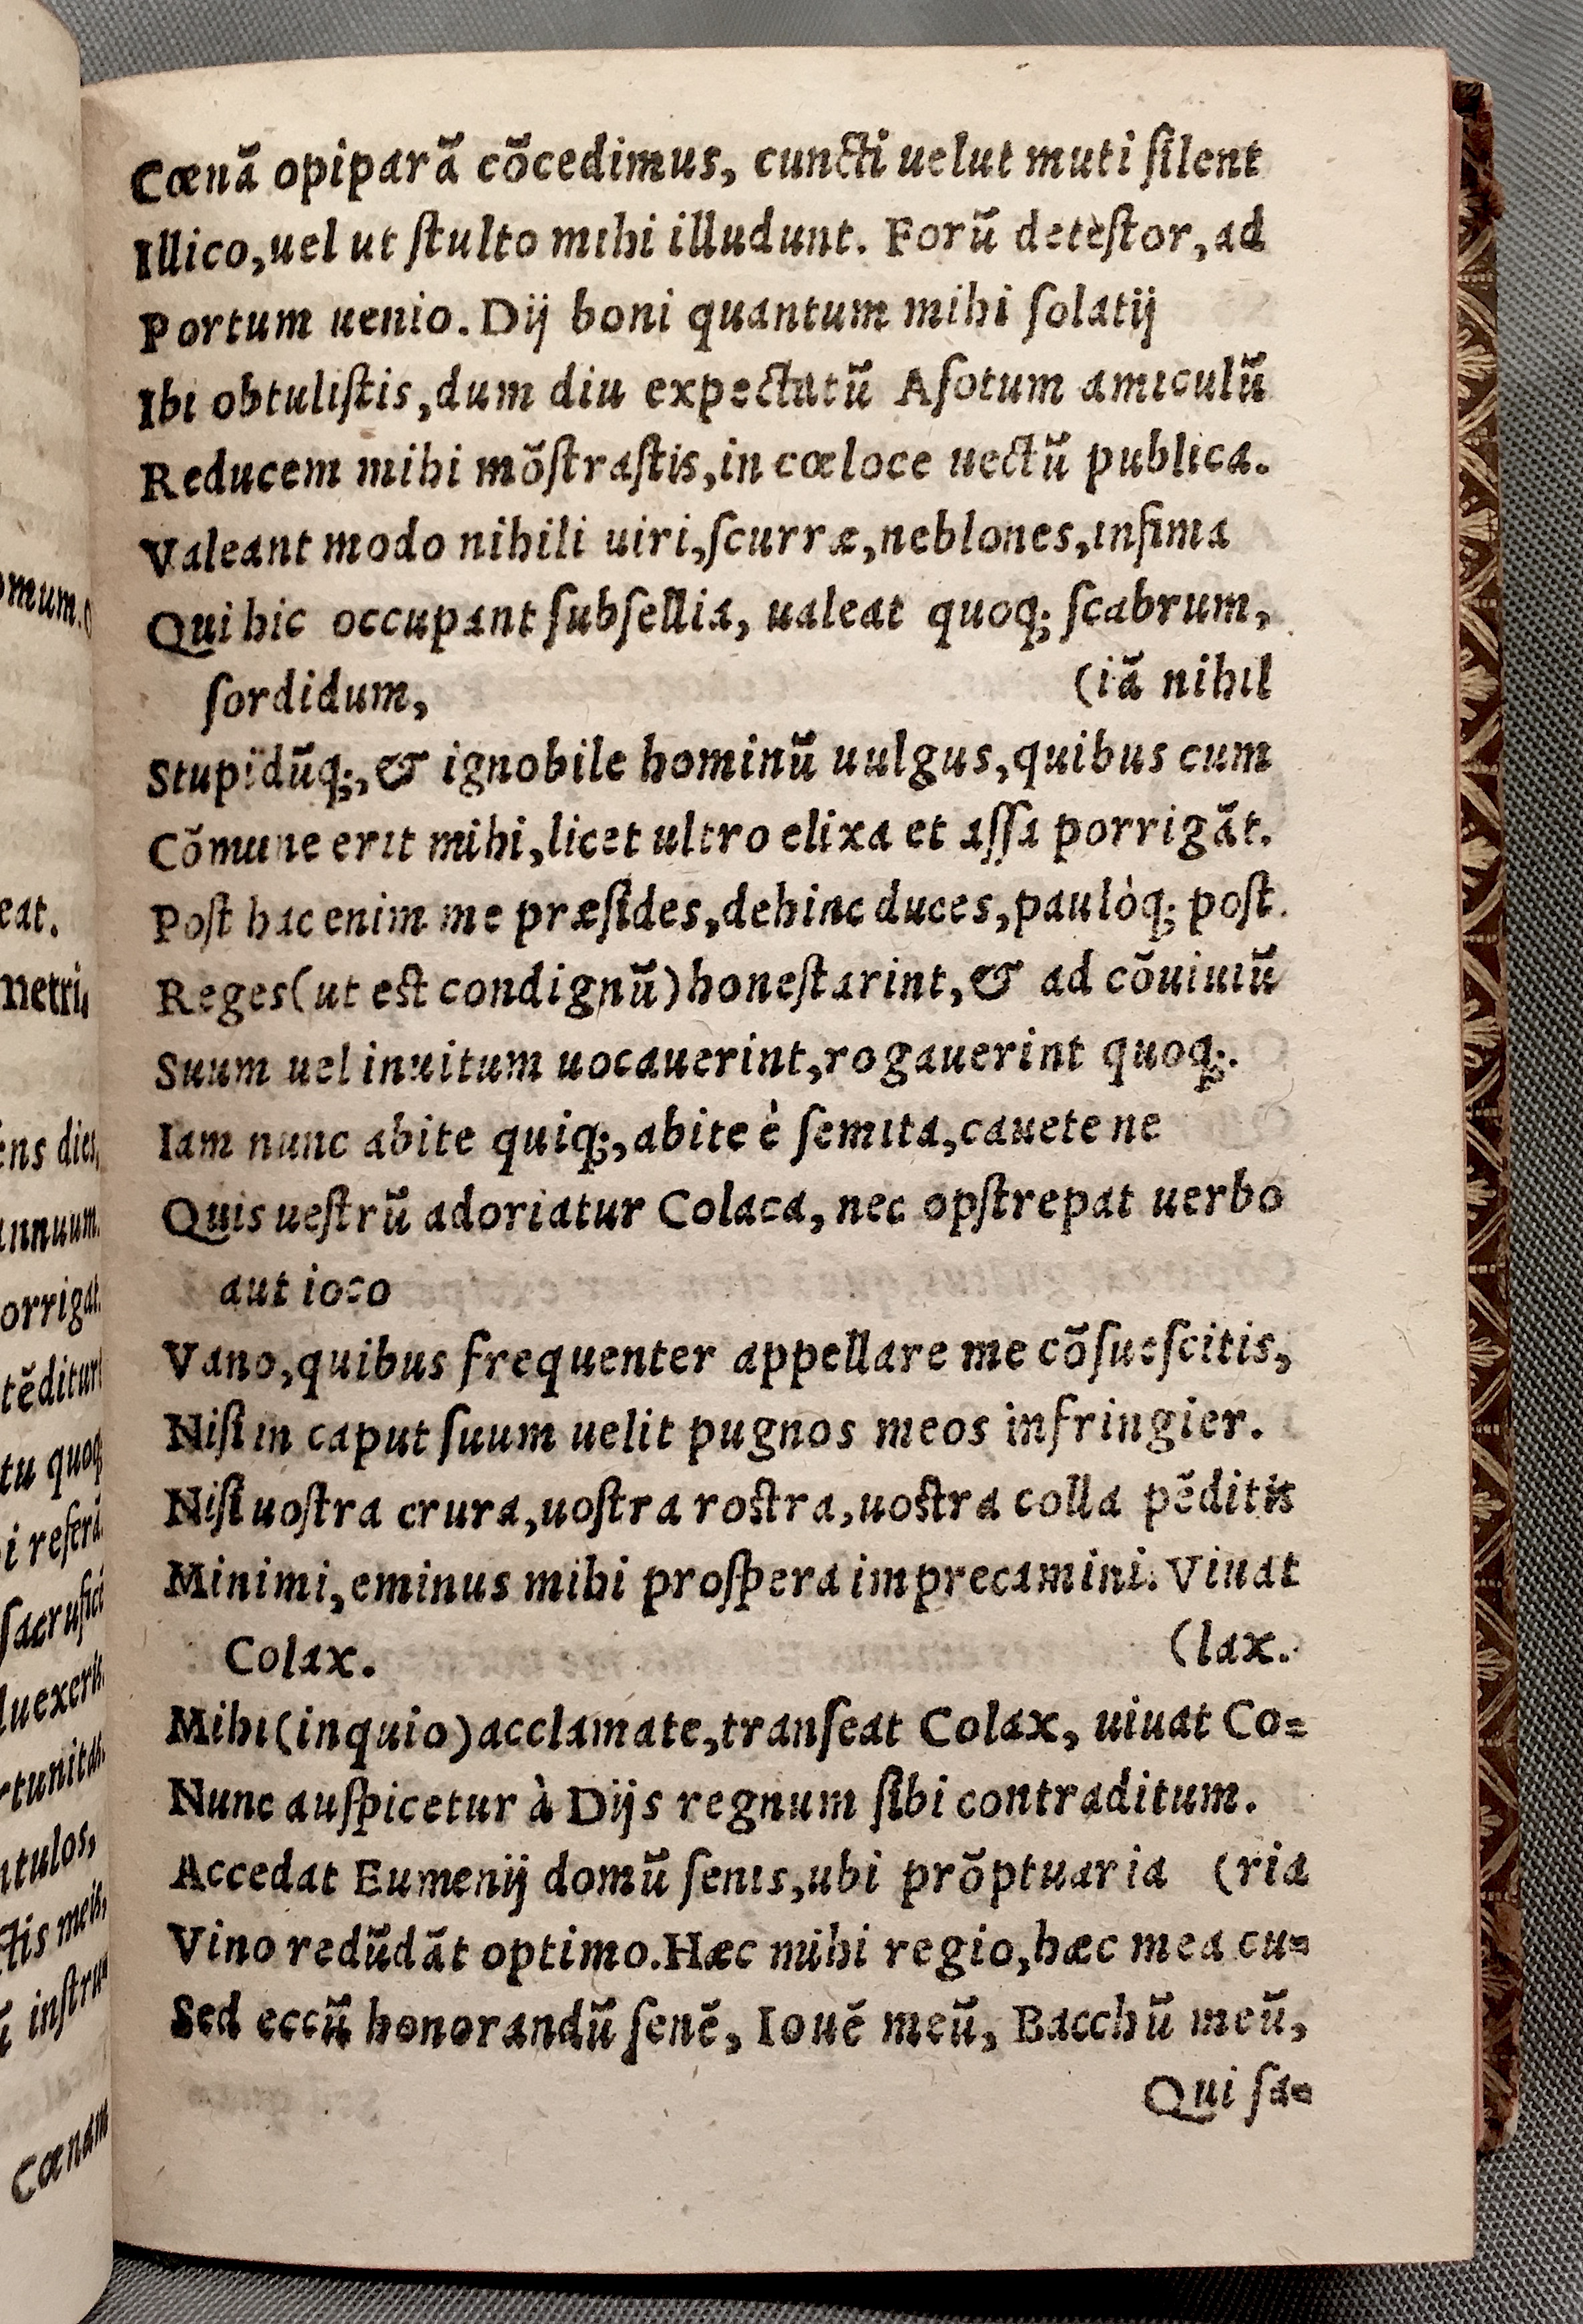 omum.
eat.
metri,
ens dies,
annuum.
orrigat.
tẽditur
tu quoq;
i referã.
sacrufici
luexerit,
rtunitas.
ntulos,
ctis meis,
instru
Cœnam
Cœnã opiparã cõcedimus, cuncti uelut muti ſilent
Illico,uel ut ſtulto mihi illudunt. Forũ detèſtor,ad
Portum uenio. Dij boni quantum mihi ſolatij
Ibi obtuliſtis,dum diu expectatũ Aſotum amiculũ
Reducem mihi mõſtraſtis,in cœloce uectũ publica.
Valeant modo nihili uiri,ſcurræ,neblones,infima
Qui hic occupant ſubſellia, ualeat quoq; ſcabrum,
ſordidum, (iã nihil
Stupidũq;,& ignobile hominũ uulgus,quibus cum
Cõmune erit mihi,licet ultro elixa et aſſa porrigãt.
Poſt hac enim me præſides,dehinc duces,paulòq; poſt.
Reges(ut eſt condignũ)honeſtarint,& ad cõuiuiũ
Suum uel inuitum uocauerint,rogauerint quoq;.
Iam nunc abite quiq;,abite è ſemita,cauete ne
Quis ueſtrũ adoriatur Colaca, nec opſtrepat uerbo
aut ioco
Vano,quibus frequenter appellare me cõſueſcitis,
Niſi in caput ſuum uelit pugnos meos infringier.
Niſi uoſtra crura,uoſtra roſtra,uoſtra colla pẽditis
Minimi,eminus mihi proſpera imprecamini. Viuat
Colax. (lax.
Mihi(inquio)acclamate,tranſeat Colax, uiuat Co=
Nunc auſpicetur à Dijs regnum ſibi contraditum.
Accedat Eumenij domũ ſenis,ubi prõptuaria (ria
Vino redũdãt optimo.Hæc mihi regio,hæc mea cu=
Sed eccũ honorandũ ſenẽ, Iouẽ meũ, Bacchũ meũ,
Qui ſa=